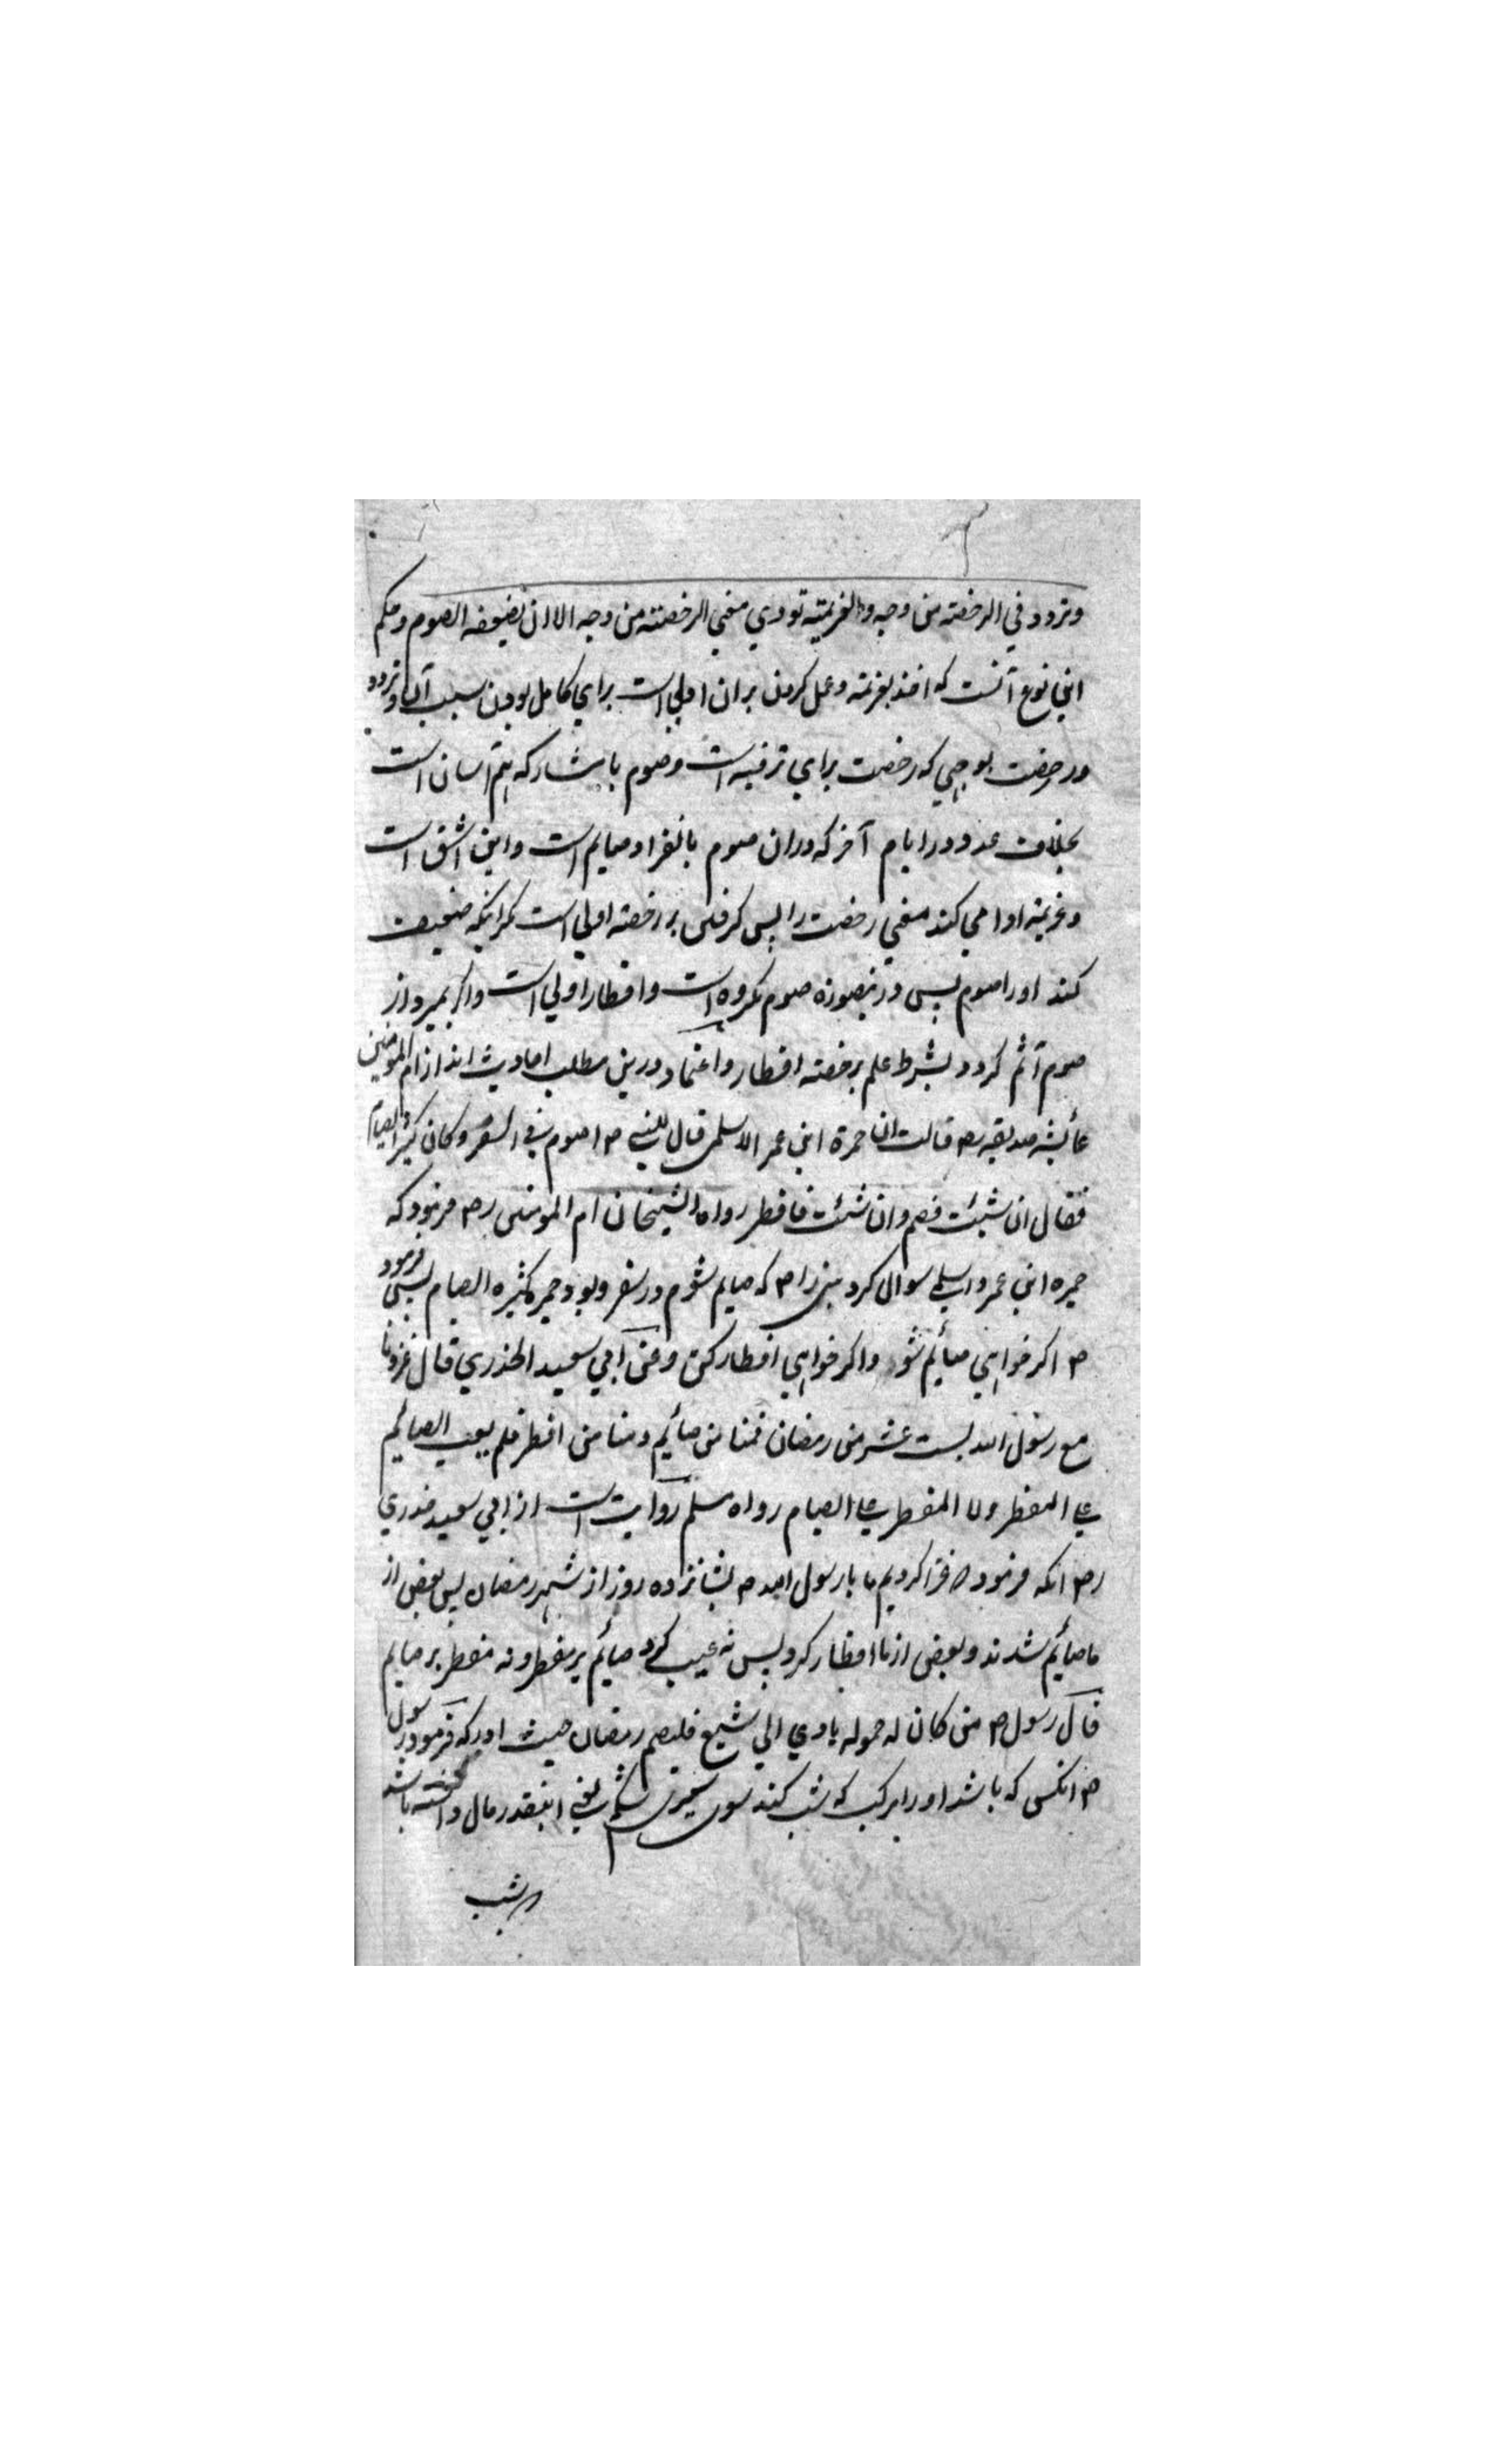 وتردد في الرخصته من وجه والغريمته تودي معني الرخصته من وجه الا ان يضيعفه الصوم وحكم
اين نوع آنست که اخذ بغريمته وعمل کردن بران اولي است براي کامل بودن سبب آن وتردد
در رخصت بوجهي که رخصت براي ترفيه است وصوم با مشارکه هم آسان است
بخلاف عدو در ايام آخر که دران صوم بانفراد صايم است واين اشق است
وغريمته ادا مي کند معني رخصت را پس گرفتن بر رخصته اولي است مگر انکه ضعيف
کند اورا صوم پس درينصورة صوم مکروه است وافطار اولي است واگر بميرد از
صوم آثم گردد بشرط علم برخصته افطار واعتماد درين مطلب احاديث اند از ام المومنين
عائشه صديقه رض قالت ان حمزة ابن عمر الاسلمي قال للنبي ص اصوم في السفر وکان کثير الصيام
فقال ان شئت فصم وان شئت فافطر رواه الشيخان ام المومنين رض فرمود که
حمزه ابن عمرو اسلمي سوال کرد نبي را ص که صايم شوم در سفر وبود حمزه کثيره الصيام پس فرمود
ص اگر خواهي صائم شو واگر خواهي افطار کن وعن ابي سعيد الخدري قال غزونا
مع رسول الله لست عشر من رمضان فمنا من صائم ومنا من افطر فلم يعيب الصائم
علي المفطر ولا المفطر علي الصيام رواه مسلم روايت است از ابي سعيد خدري
رض انکه فرمود غزا کرديم ما با رسول الله ص بشانزده روز از شهر رمضان پس بعض از
ما صائم شدند وبعض از ما افطار کرد پس نه عيب کرد صائم بر مفطر ونه مفطر بر صايم
قال رسول ص من کان له حموله ياوي الي شبع فليصم رمضان حيث ادرکه فرمود رسول
ص انکسي که باشد اورا مرکب که شب کند سوي سيري شکم يعني اينقدر مال داشته باشد که
در شب